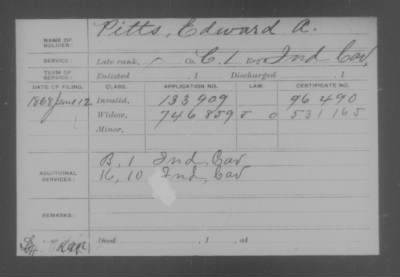 NAME OF SOLDIER: Pitts, Edward A.
SERVICE: Late rank, Co. C. 1 Reg't Ind Cav,
TERM OF SERVICE: Enlisted , 1 Discharged , 1
DATE OF FILING. CLASS. APPLICATION NO. LAW. CERTIFICATE NO.
1868 June 12 Invalid, 133909 96490
Widow, 746859 531165
Minor,
ADDITIONAL SERVICES: B. 1 Ind, Cav
K, 10 Ind, Cav
REMARKS:
Died , 1 , at